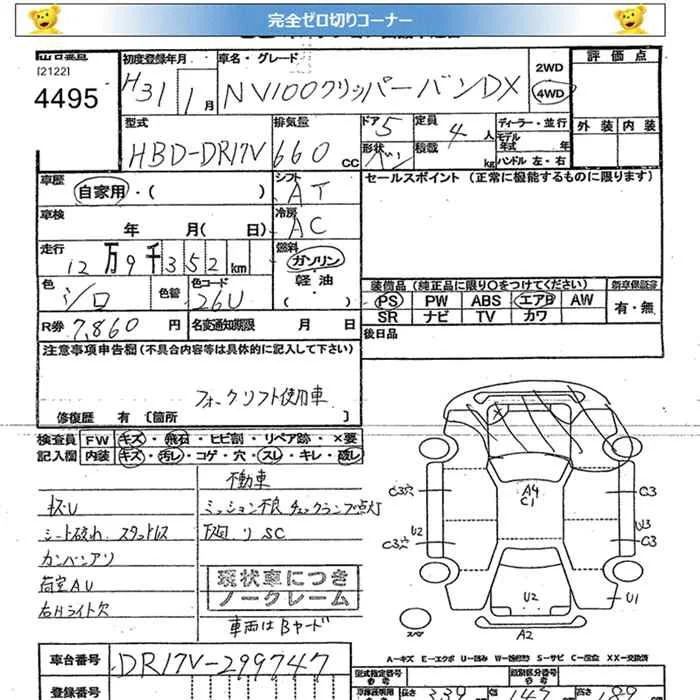 完全ゼロ切りコーナー
[2122]
4495
初度登録年月
H31 1月
車名・グレード
NV100クリッパーバンDX
2WD
4WD
評価点
外装 内装
型式
HBD-DR17V
排気量
660 CC
ドア 5
形状 バン
定員 4 人
積載 kg
ディーラー・並行
モデル年式 年
ハンドル 左・右
車歴
自家用・( )
シフト
AT
セールスポイント (正常に機能するものに限ります)
車検
年 月( 日)
冷房
AC
走行
12万9千352km
燃料
ガソリン
軽油
( )
色
シロ
色替
色コード
26U
装備品 (純正品に限り○をつけてください)
PS PW ABS エアB AW
SR ナビ TV カワ
新車保証書
有・無
R券 7,860 円
名変通知期限 月 日
後日品
注意事項申告欄 (不具合内容等は具体的に記入して下さい)
フォークリフト使用車
修復歴 有 〔箇所
検査員記入欄
FW キズ・飛石・ヒビ割・リペア跡・×要
内装 キズ・汚レ・コゲ・穴・スレ・キレ・破レ
不動車
キズU
ミッション不良 チェックランプ点灯
シート破れ スタッドレス
下回り SC
カンバンアリ
荷室AU
右Hライト欠
現状車につき
ノークレーム
車両はBヤード
A4
C1
C3穴
C3
U2
U3
C3穴
C3
U2
U1
スペア
A2
A－キズ E－エクボ U－凹み S－サビ C－腐食 XX－交換済
車台番号
DR17V-299747
登録番号
型式指定番号
類別区分番号
参考
長さ
339
147
189